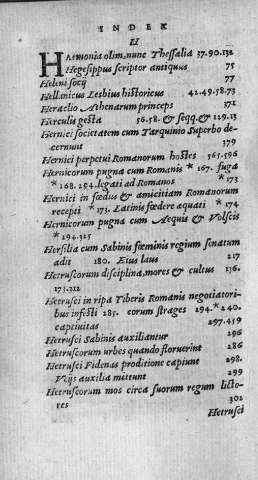 INDEX
H
HAemonia olim, nunc Thessalia 37.90.132
Hegesippus scriptor antiquus 75
Heleni socij 77
Hellanicus Lesbius historicus 42.49.58.73
Heraclio Athenarum princeps 371
Herculis gesta 56.58. & seqq. & 129.13
Hernici societatem cum Tarquinio Superbo de-
cernunt 379
Hernici perpetui Romanorum hostes 565.596
Hernicorum pugna cum Romanis * 167. fuga
* 168. 294. legati ad Romanos * 173
Hernici in fœdus & amicitiam Romanorum
recepti * 173. Latinis fœdere æquati * 174
Hernicorum pugna cum Aequis & Volscis
* 294.325
Hersilia cum Sabinis fœminis regium senatum
adit 180. Eius laus 217
Hetruscorum disciplina, mores & cultus 136.
175.212
Hetrusci in ripa Tiberis Romanis negotiatori-
bus infesti 285. eorum strages 294. * 240.
captiuitas 297.459
Hetrusci Sabinis auxiliantur 296
Hetruscorum urbes quando floruerint 286
Hetrusci Fidenas proditione capiunt 298.
Veijs auxilia mittunt 299
Hetruscorum mos circa suorum regum licto-
res 302
Hetrusci